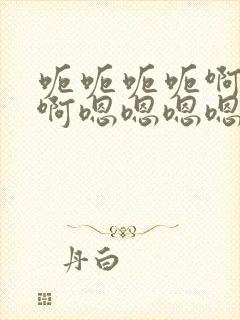 呃呃呃呃啊
啊嗯嗯嗯嗯
丹白